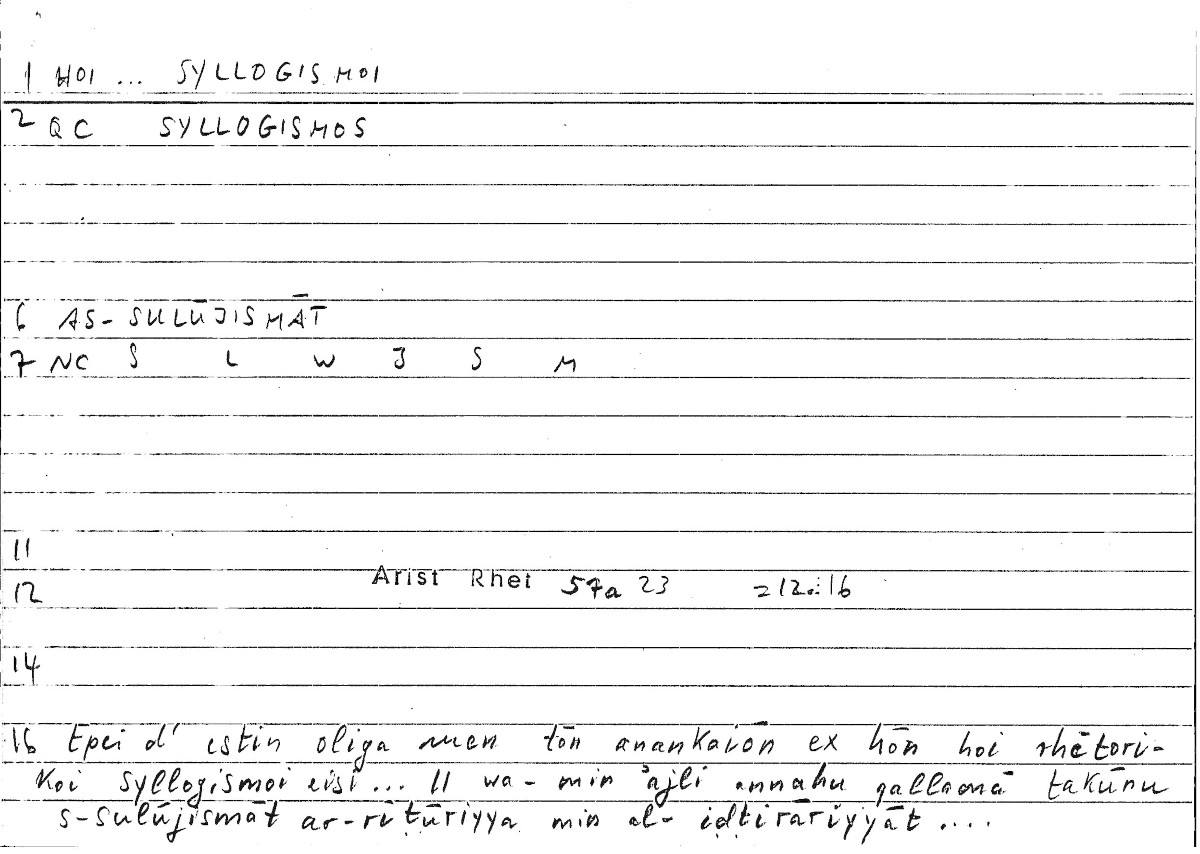 1 HOI ... SYLLOGISMOI
2 QC SYLLOGISMOS
6 AS-SULŪJISMĀT
7 NC S L W J S M
11
12 Arist Rhet 57a 23 =12.:16
14
16 Epei d' estin oliga men tōn anankaiōn ex hōn hoi rhētori-
koi syllogismoi eisi... || wa-min ʾajli annahu qallamā takūnu
s-sulūjismāt ar-rīṭūriyya min al-iḍṭirāriyyāt ....